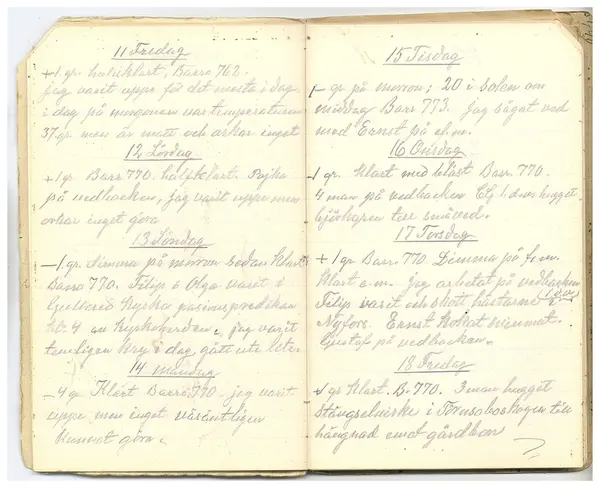 11 Fredag
+1 gr. halvklart, Barro 762.
jag varit uppe på det mesta i dag
i dag på morgonen var temperaturen
37 gr. men är matt och orkar inget
12 Lördag
+1 gr. Barr 770. halvklart. Pojka
på vedbacken, jag varit uppe men
orkar inget göra
13 Söndag
-1 gr. Dimma på morron sedan klart
Barro 770. Filip o Olga varit i
kyrka
kl. 4 av kyrkoherden. jag varit
temligen kry i dag gått ute
14 Måndag
-4 gr. Klart Barro 770. jag varit
uppe men inget väsäntligen
kunnat göra.
15 Tisdag
- gr på morron; 20 i solen om
middag Barr 773. Jag sågat ved
med Ernst på e.m.
16 Onsdag
1 gr. Klart med blåst Barr. 770.
4 man på vedbacken
björkagren till småved.
17 Torsdag
+1 gr Barr 770 Dimma på f.m.
Klart e.m. jag arbetat på vedbacken
Filip varit och skott hästarne i
Nyfors. Ernst hemmat.
Gustaf på vedbacken.
18 Fredag
1 gr Klart. B. 770. 3 man hugget
i till
hängnad emot gårdbon